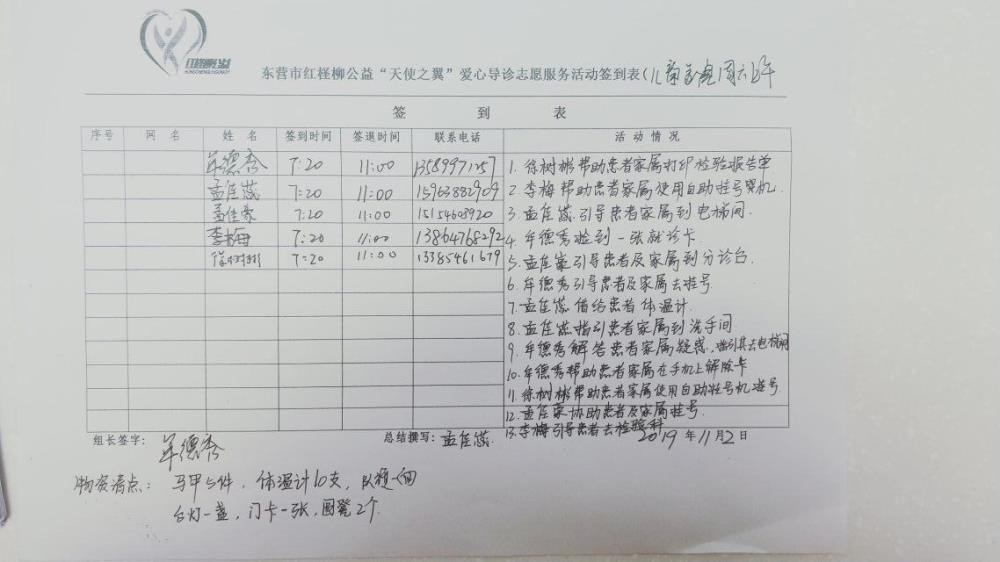 红柽柳公益
东营市红柽柳公益“天使之翼”爱心导诊志愿服务活动签到表(儿童医院周六上午
签 到 表
序号 网 名 姓 名 签到时间 签退时间 联系电话 活 动 情 况
牟德秀 7:20 11:00 13589971257 1. 徐树彬帮助患者家属打印检验报告单
孟佳蕊 7:20 11:00 15963882909 2. 李梅帮助患者家属使用自助挂号机.
孟佳豪 7:20 11:00 15154608920 3. 孟佳蕊引导患者家属到电梯间.
李梅 7:20 11:00 13864768292 4. 牟德秀捡到一张就诊卡.
徐树彬 7:20 11:00 13385461679 5. 孟佳豪引导患者及家属到分诊台.
6. 牟德秀引导患者及家属去挂号.
7. 孟佳蕊借给患者体温计.
8. 孟佳蕊指引患者家属到洗手间
9. 牟德秀解答患者家属疑惑,指引其去电梯间
10. 牟德秀帮助患者家属在手机上解除卡
11. 徐树彬帮助患者家属使用自助挂号机挂号
12. 孟佳豪协助患者及家属挂号.
13. 李梅引导患者去检验科
组长签字: 牟德秀 总结撰写: 孟佳蕊. 2019 年 11 月 2 日
物资清点: 马甲5件, 体温计10支, 队旗一面
台灯一盏, 门卡一张, 圆凳2个.